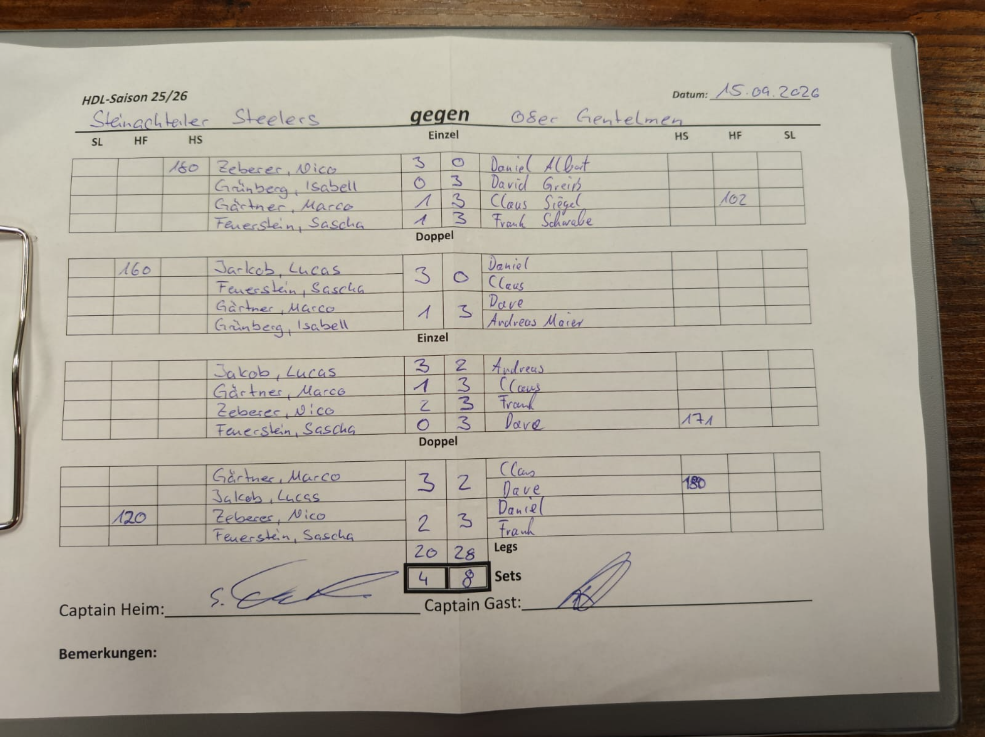 HDL-Saison 25/26 Datum: 15.09.2026
Steinachteiler Steelers gegen 08er Gentelmen
SL HF HS Einzel HS HF SL
180 Zeberer, Nico 3 0 Daniel Albat
Grünberg, Isabell 0 3 David Greiß
Gärtner, Marco 1 3 Claus Siegel 102
Feuerstein, Sascha 1 3 Frank Schwabe
Doppel
160 Jarkob, Lucas 3 0 Daniel
Feuerstein, Sascha Claus
Gärtner, Marco 1 3 Dave
Grünberg, Isabell Andreas Maier
Einzel
Jakob, Lucas 3 2 Andreas
Gärtner, Marco 1 3 Claus
Zeberer, Nico 2 3 Frank
Feuerstein, Sascha 0 3 Dave 171
Doppel
Gärtner, Marco 3 2 Claus
Jakob, Lucas Dave 180
120 Zeberer, Nico 2 3 Daniel
Feuerstein, Sascha Frank
20 28 Legs
4 8 Sets
Captain Heim: Captain Gast:
Bemerkungen: